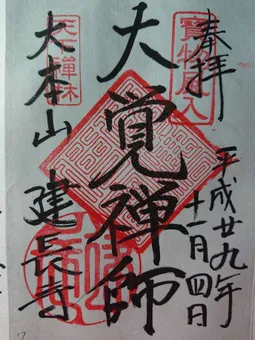 奉拝
寶物風入
平成廿九年
十一月四日
大覚禅師
天下禅林
大本山 建長寺
17